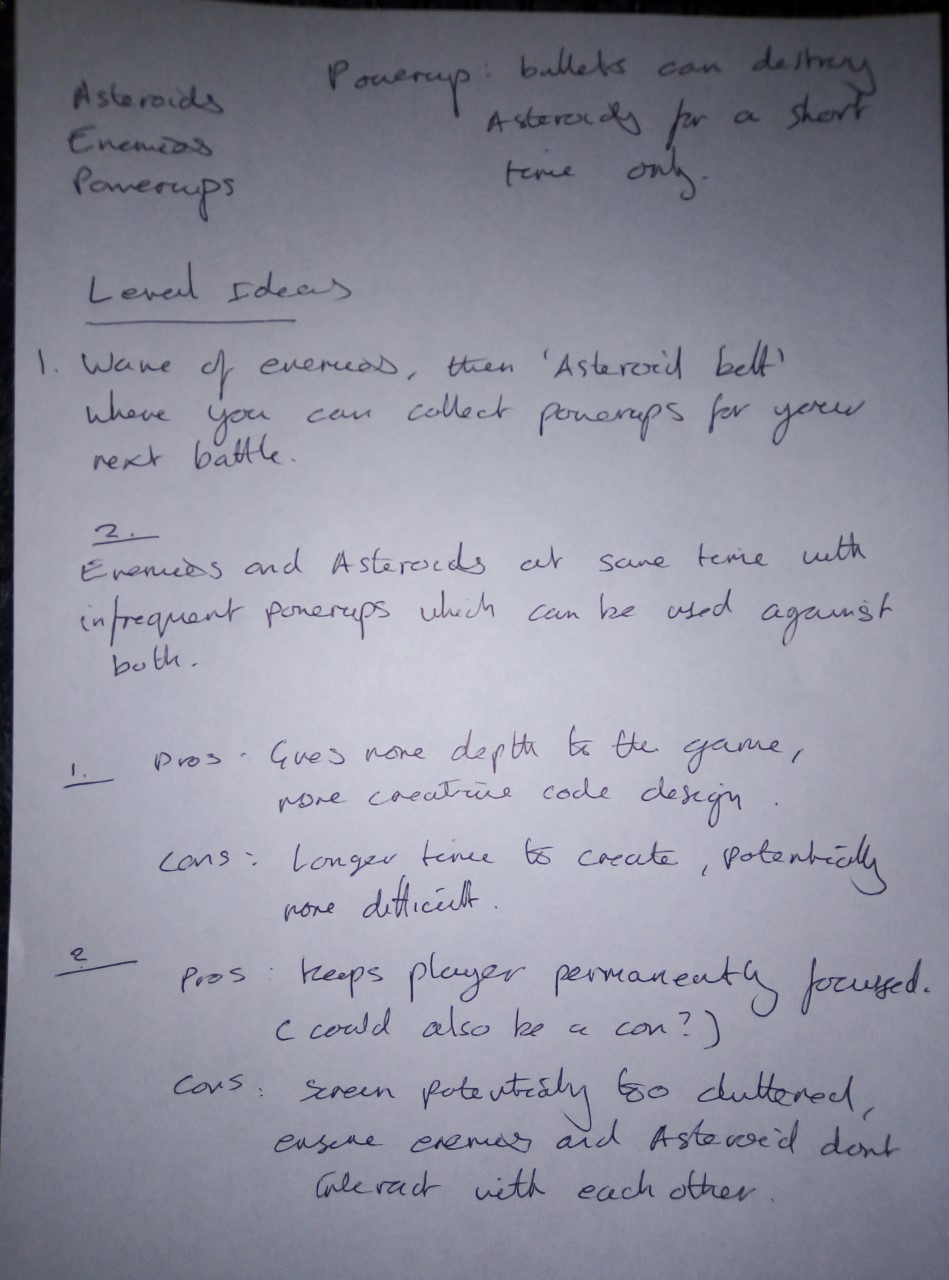 Asteroids
Enemies
Powerups
Powerup: bullets can destroy
Asteroids for a short
time only.
Level Ideas
1. Wave of enemies, then 'Asteroid belt'
where you can collect powerups for your
next battle.
2.
Enemies and Asteroids at same time with
infrequent powerups which can be used against
both.
1. Pros - Gives more depth to the game,
more creative code design.
Cons: Longer time to create, potentially
more difficult.
2 Pros: Keeps player permanently focussed.
(could also be a con?)
Cons: Screen potentially too cluttered,
ensure enemies and Asteroid dont
interact with each other.